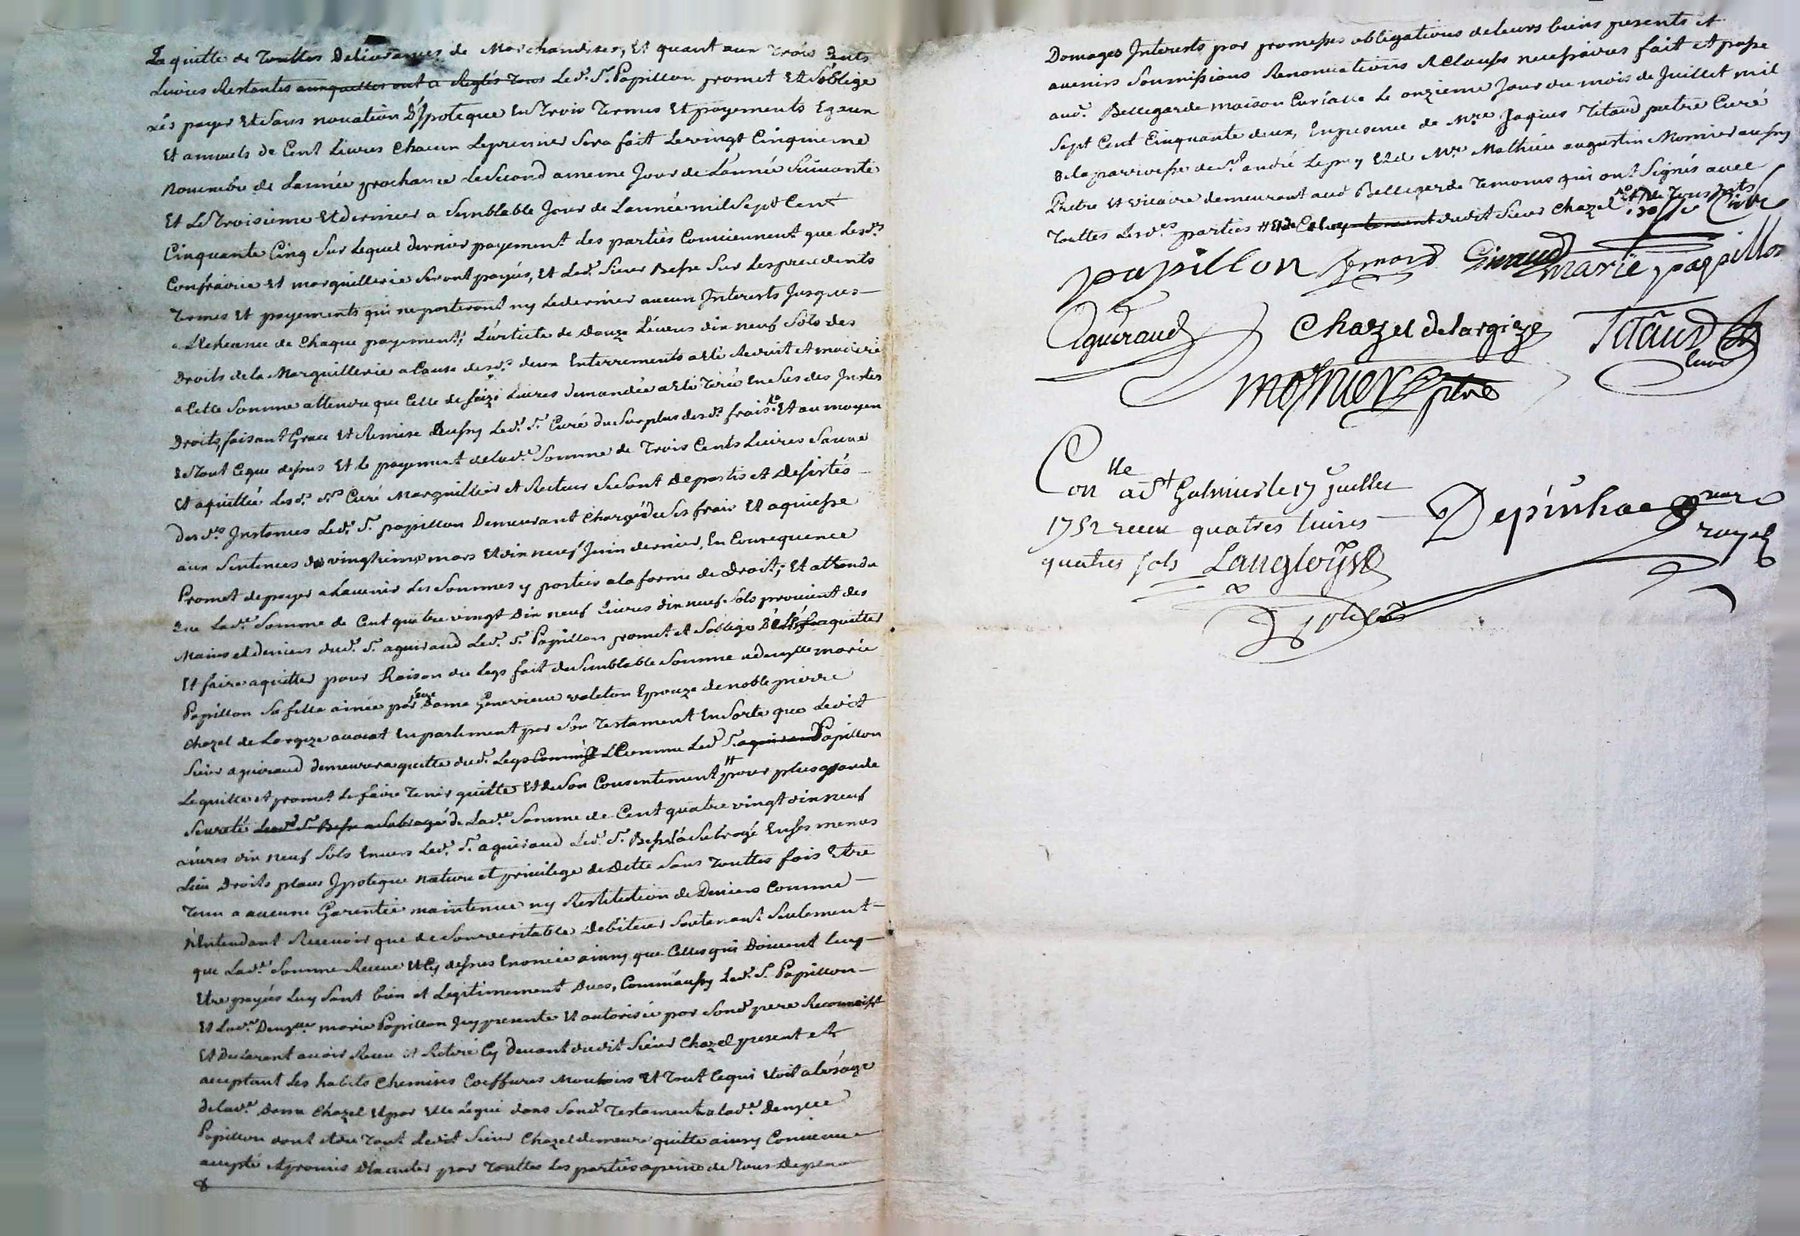 La quitte de Touttes Delivrances de Marchandises, Et quant aux Trois Cents
Livres Restantes auxquelles ont Led. Sr. Papillon promet Et s'oblige
Les payer Et sans novation D'Ipoteque En Trois Termes Et payements Egaux
Et annuels de Cent Livres Chacun Le premier Sera fait Le vingt Cinquieme
novembre de L'année prochaine Le Second a meme Jour de L'année Suivante
Et Le Troisieme Et dernier a Semblable Jour de L'année mil Sept Cent
Cinquante Cinq Sur Lequel dernier payement des parties Conviennent que Lesd.
Confrairie Et marguillerie Seront payés, Et Led. Sieur Besse Sur Les precedents
Termes Et payements qui ne porteront ny Le dernier aucun Interets Jusques
a L'Echeance de Chaque payement; L'article de Douze Livres dix neuf Sols des
Droits de la Marguillerie a Cause desd. deux Enterrements a été Reduit et moderé
a Cette Somme attendu que Celle de Seize Livres demandée a été Tirée En Sus des Justes
Droits, faisant Grace Et Remise Aussy Led. Sr. Curé du Surplus desd. frais Et au moyen
de Tout Ce que dessus Et le payement de Lad. Somme de Trois Cents Livres Sauve
Et aquittée Lesd. Srs. Curé Marguillier et Recteur Se Sont Departis et Desistés
desd. Instances Led. Sr. papillon Demeurant Chargé de Ses frais Et aquiesse
aux Sentences du vingtieme mars Et dix neuf Juin dernier, En Consequence
Promet de payer a L'avenir Les Sommes y portées a la forme de Droit; Et attendu
que Lad. Somme de Cent quatre vingt Dix neuf Livres dix neuf Sols provient des
Mains et deniers dud. Sr. aguiraud Led. Sr. Papillon promet et S'oblige De aquitter
Et faire aquitter pour Raison du Legs fait de Semblable Somme a demlle marie
Papillon Sa fille ainée par feue Dame Genevieve valeton Epouze de noble pierre
Chazel de Largeze avocat En parlement par Son Testament En Sorte que Ledit
Sieur aguiraud demeurera quitte dud. Legs Comme Led. Sr. aguiraud Papillon
Le quitte et promet Le faire Tenir quitte Et de Son Consentement # pour plus grande
Seureté Led. Sr. Besse a Subrogé de Lad. Somme de Cent quatre vingt dix neuf
Livres dix neuf Sols Envers Led. Sr. aguiraud Led. Sr. Besse L'a Subrogé En Ses memes
Lieu Droits place Ipoteque nature et privilege de Dette Sans Touttes fois Etre
Tenu a aucune Garentie maintenue ny Restitution de Deniers Comme
N'Entendant Recevoir que de Son veritable Debiteur Soutenant Seulement
que Lad. Somme Receue Et Cy dessus Enoncée ainsy que Celles qui Doivent Luy
Etre payées Luy Sont bien et Legitimement Dues, Comm'aussy Led. Sr. Papillon
Et Lad. Demlle marie Papillon Icy presente Et autorisée par Sond. pere Reconnoissent
Et Declarent avoir Receu et Retiré Cy Devant dudit Sieur Chazel present et
acceptant Les habits Chemises Coeffures Mouchoirs Et Tout Ce qui Etoit a L'usage
de Lad. Dame Chazel Et par Elle Legué dans Sond. Testament a Lad. Demlle
Papillon dont et du Tout Ledit Sieur Chazel demeure quitte ainsy Convenu
accepté Et promis Executer par Touttes Les parties a peine de Tous Depens
Domages Interets par promesses obligations de leurs biens presents et
avenirs Soumissions Renonciations & Clauses necessaires fait et passé
aud. Bellegarde maison Curialle Le onzieme Jour du mois de Juillet mil
Sept Cent Cinquante deux, En presence de Mre. Jaques Titaud pretre Curé
de la parroisse de St. andré Le puy Et de Mre. Mathieu augustin Monier aussy
Pretre Et vicaire demeurant aud. Bellegarde Temoins qui ont Signés avec
Touttes Lesd. parties # Et de dudit Sieur Chazel
papillon Giraud marie papillon
Aguiraud Chazel de largeze Titaud Curé
monier ptre
Conlle a St Galmier le 17 juillet
1752 receu quatres livres
quatres sols Langloys
Depinhac nore royal